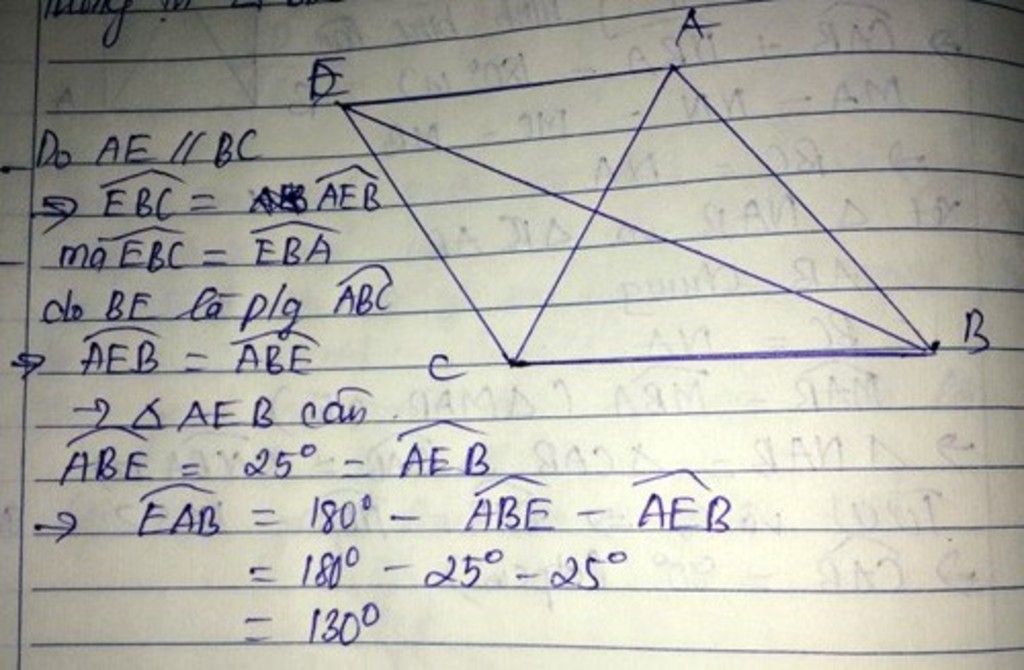 A
E
Do AE // BC
=> EBC = AEB
mà EBC = EBA
do BE là p/g ABC
=> AEB = ABE
C
B
-> Δ AEB cân.
ABE = 25° - AEB
-> EAB = 180° - ABE - AEB
= 180° - 25° - 25°
= 130°